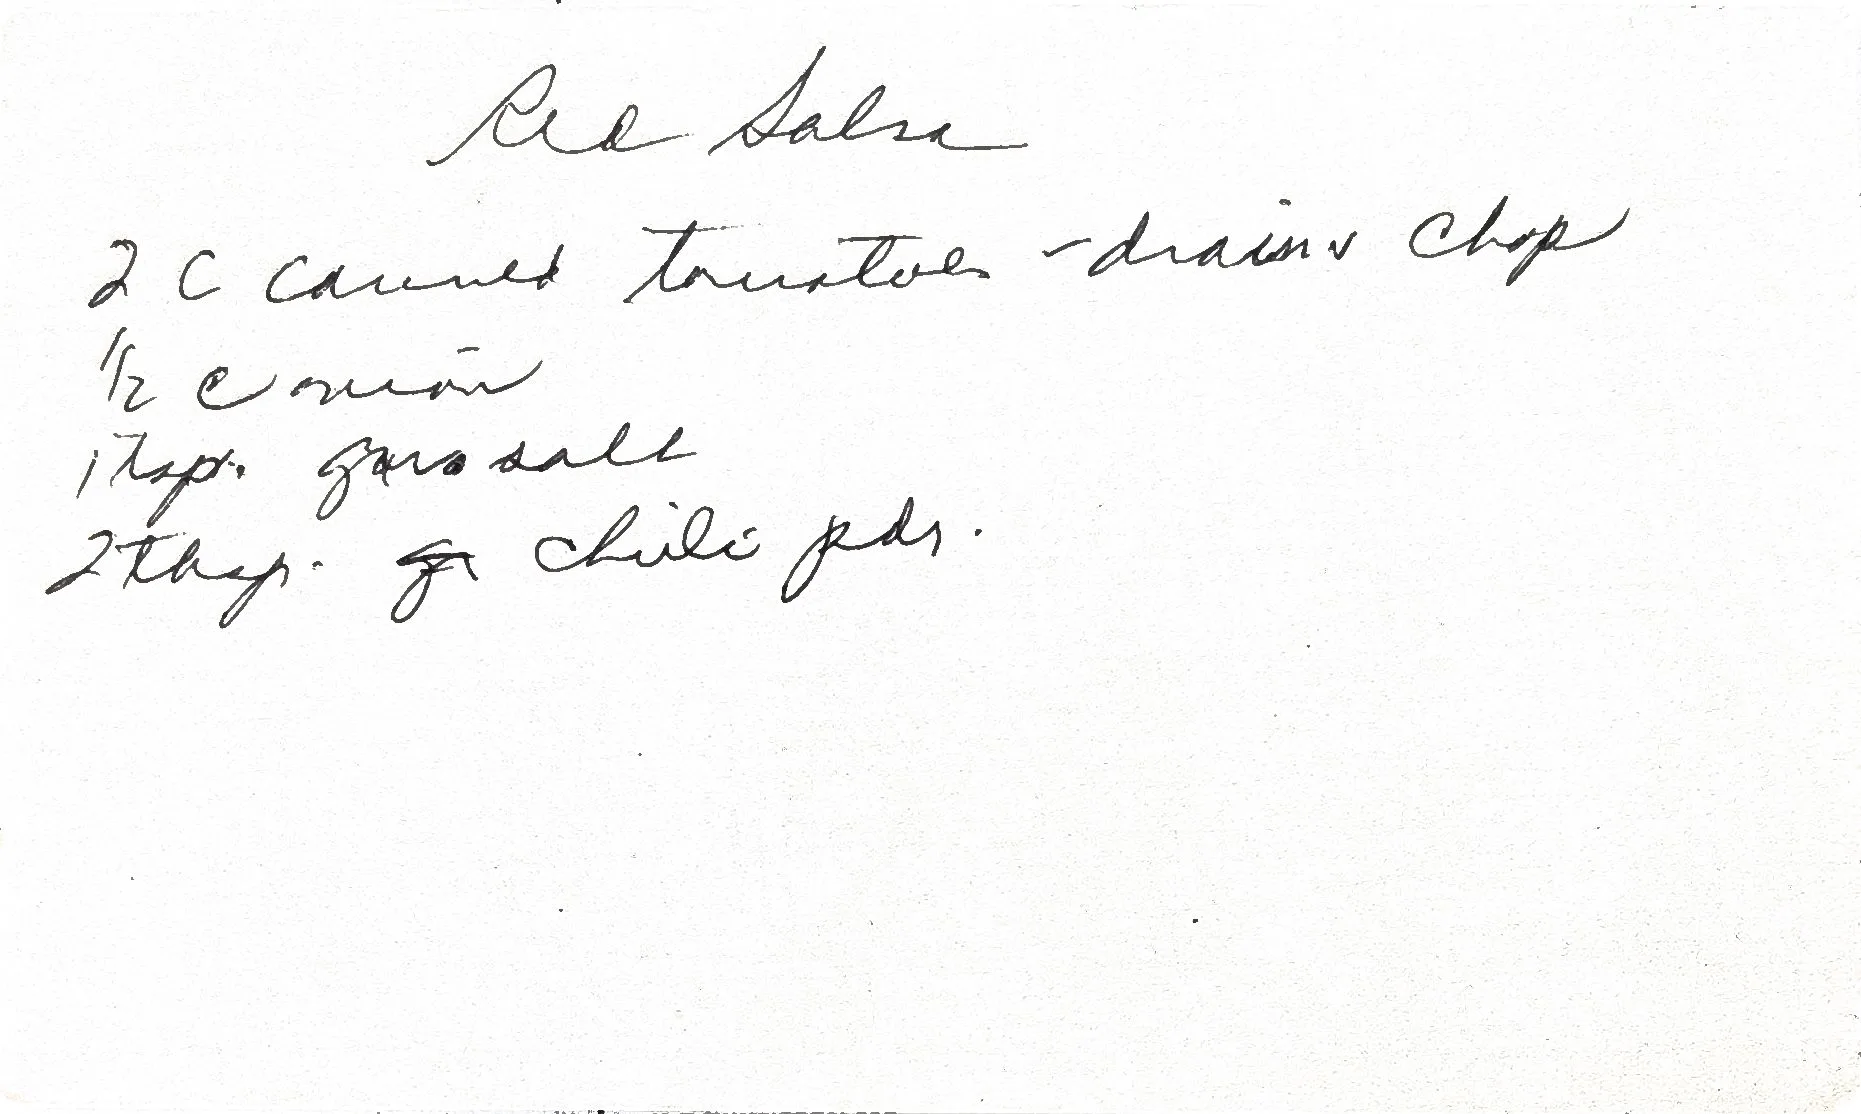 Red Salsa
2 C canned tomatoes - drain & chop
1/2 c onion
1 tsp. salt
2 tbsp. chili pdr.